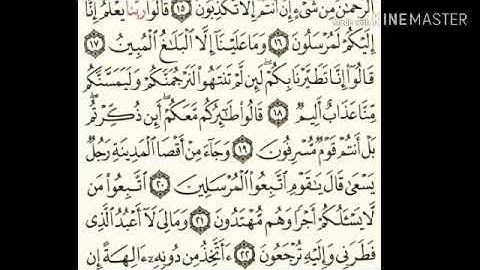 ٱلرَّحْمَٰنُ مِن شَىْءٍ إِنْ أَنتُمْ إِلَّا تَكْذِبُونَ ۝١٥ قَالُوا۟ رَبُّنَا يَعْلَمُ إِنَّآ
KINEMASTER
إِلَيْكُمْ لَمُرْسَلُونَ ۝١٦ وَمَا عَلَيْنَآ إِلَّا ٱلْبَلَٰغُ ٱلْمُبِينُ ۝١٧
قَالُوٓا۟ إِنَّا تَطَيَّرْنَا بِكُمْ ۖ لَئِن لَّمْ تَنتَهُوا۟ لَنَرْجُمَنَّكُمْ وَلَيَمَسَّنَّكُم
مِّنَّا عَذَابٌ أَلِيمٌ ۝١٨ قَالُوا۟ طَٰٓئِرُكُم مَّعَكُمْ ۚ أَئِن ذُكِّرْتُم ۚ
بَلْ أَنتُمْ قَوْمٌ مُّسْرِفُونَ ۝١٩ وَجَآءَ مِنْ أَقْصَا ٱلْمَدِينَةِ رَجُلٌ
يَسْعَىٰ قَالَ يَٰقَوْمِ ٱتَّبِعُوا۟ ٱلْمُرْسَلِينَ ۝٢٠ ٱتَّبِعُوا۟ مَن
لَّا يَسْـَٔلُكُمْ أَجْرًا وَهُم مُّهْتَدُونَ ۝٢١ وَمَالِىَ لَآ أَعْبُدُ ٱلَّذِى
فَطَرَنِى وَإِلَيْهِ تُرْجَعُونَ ۝٢٢ ءَأَتَّخِذُ مِن دُونِهِۦٓ ءَالِهَةً إِن